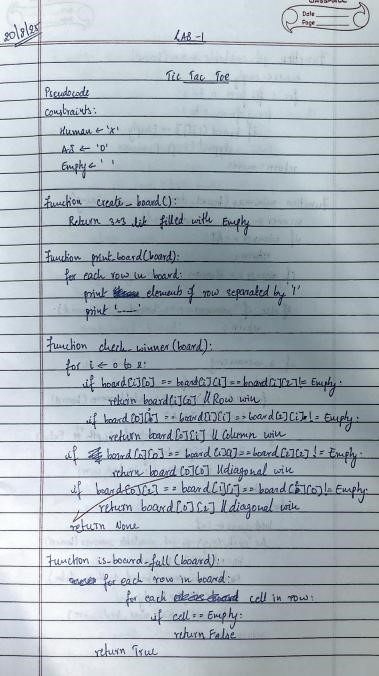 CLASSMATE
Date
Page
20/8/25
LAB-1
Tic Tac Toe
Pseudocode
Constraints:
Human ← 'X'
AI ← 'O'
Empty ← ' '
Function create_board():
Return 3*3 list filled with Empty
Function print_board(board):
for each row in board:
print elements of row separated by '|'
print '-----'
Function check_winner(board):
for i ← 0 to 2:
if board[i][0] == board[i][1] == board[i][2] != Empty:
return board[i][0] // Row win
if board[0][i] == board[1][i] == board[2][i] != Empty:
return board[0][i] // Column win
if board[0][0] == board[1][1] == board[2][2] != Empty:
return board[0][0] // diagonal win
if board[0][2] == board[1][1] == board[2][0] != Empty:
return board[0][2] // diagonal win
return None
Function is_board_full(board):
for each row in board:
for each cell in row:
if cell == Empty:
return False
return True